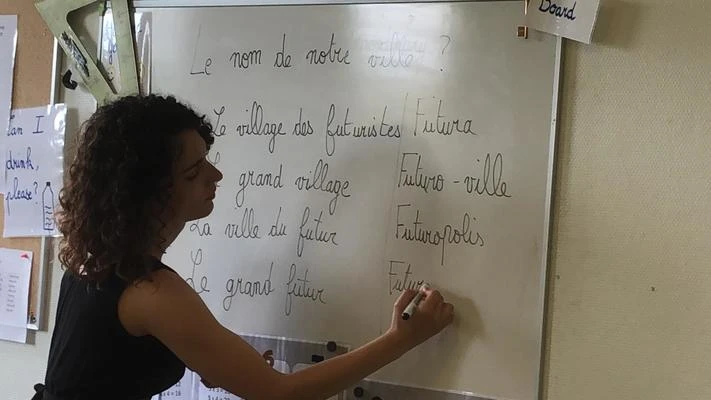 Board
Le nom de notre ville ?
Le village des futuristes
Futura
grand village
Futuro-ville
La ville du futur
Futuropolis
Le grand futur
Futur
Can I
drink,
please?